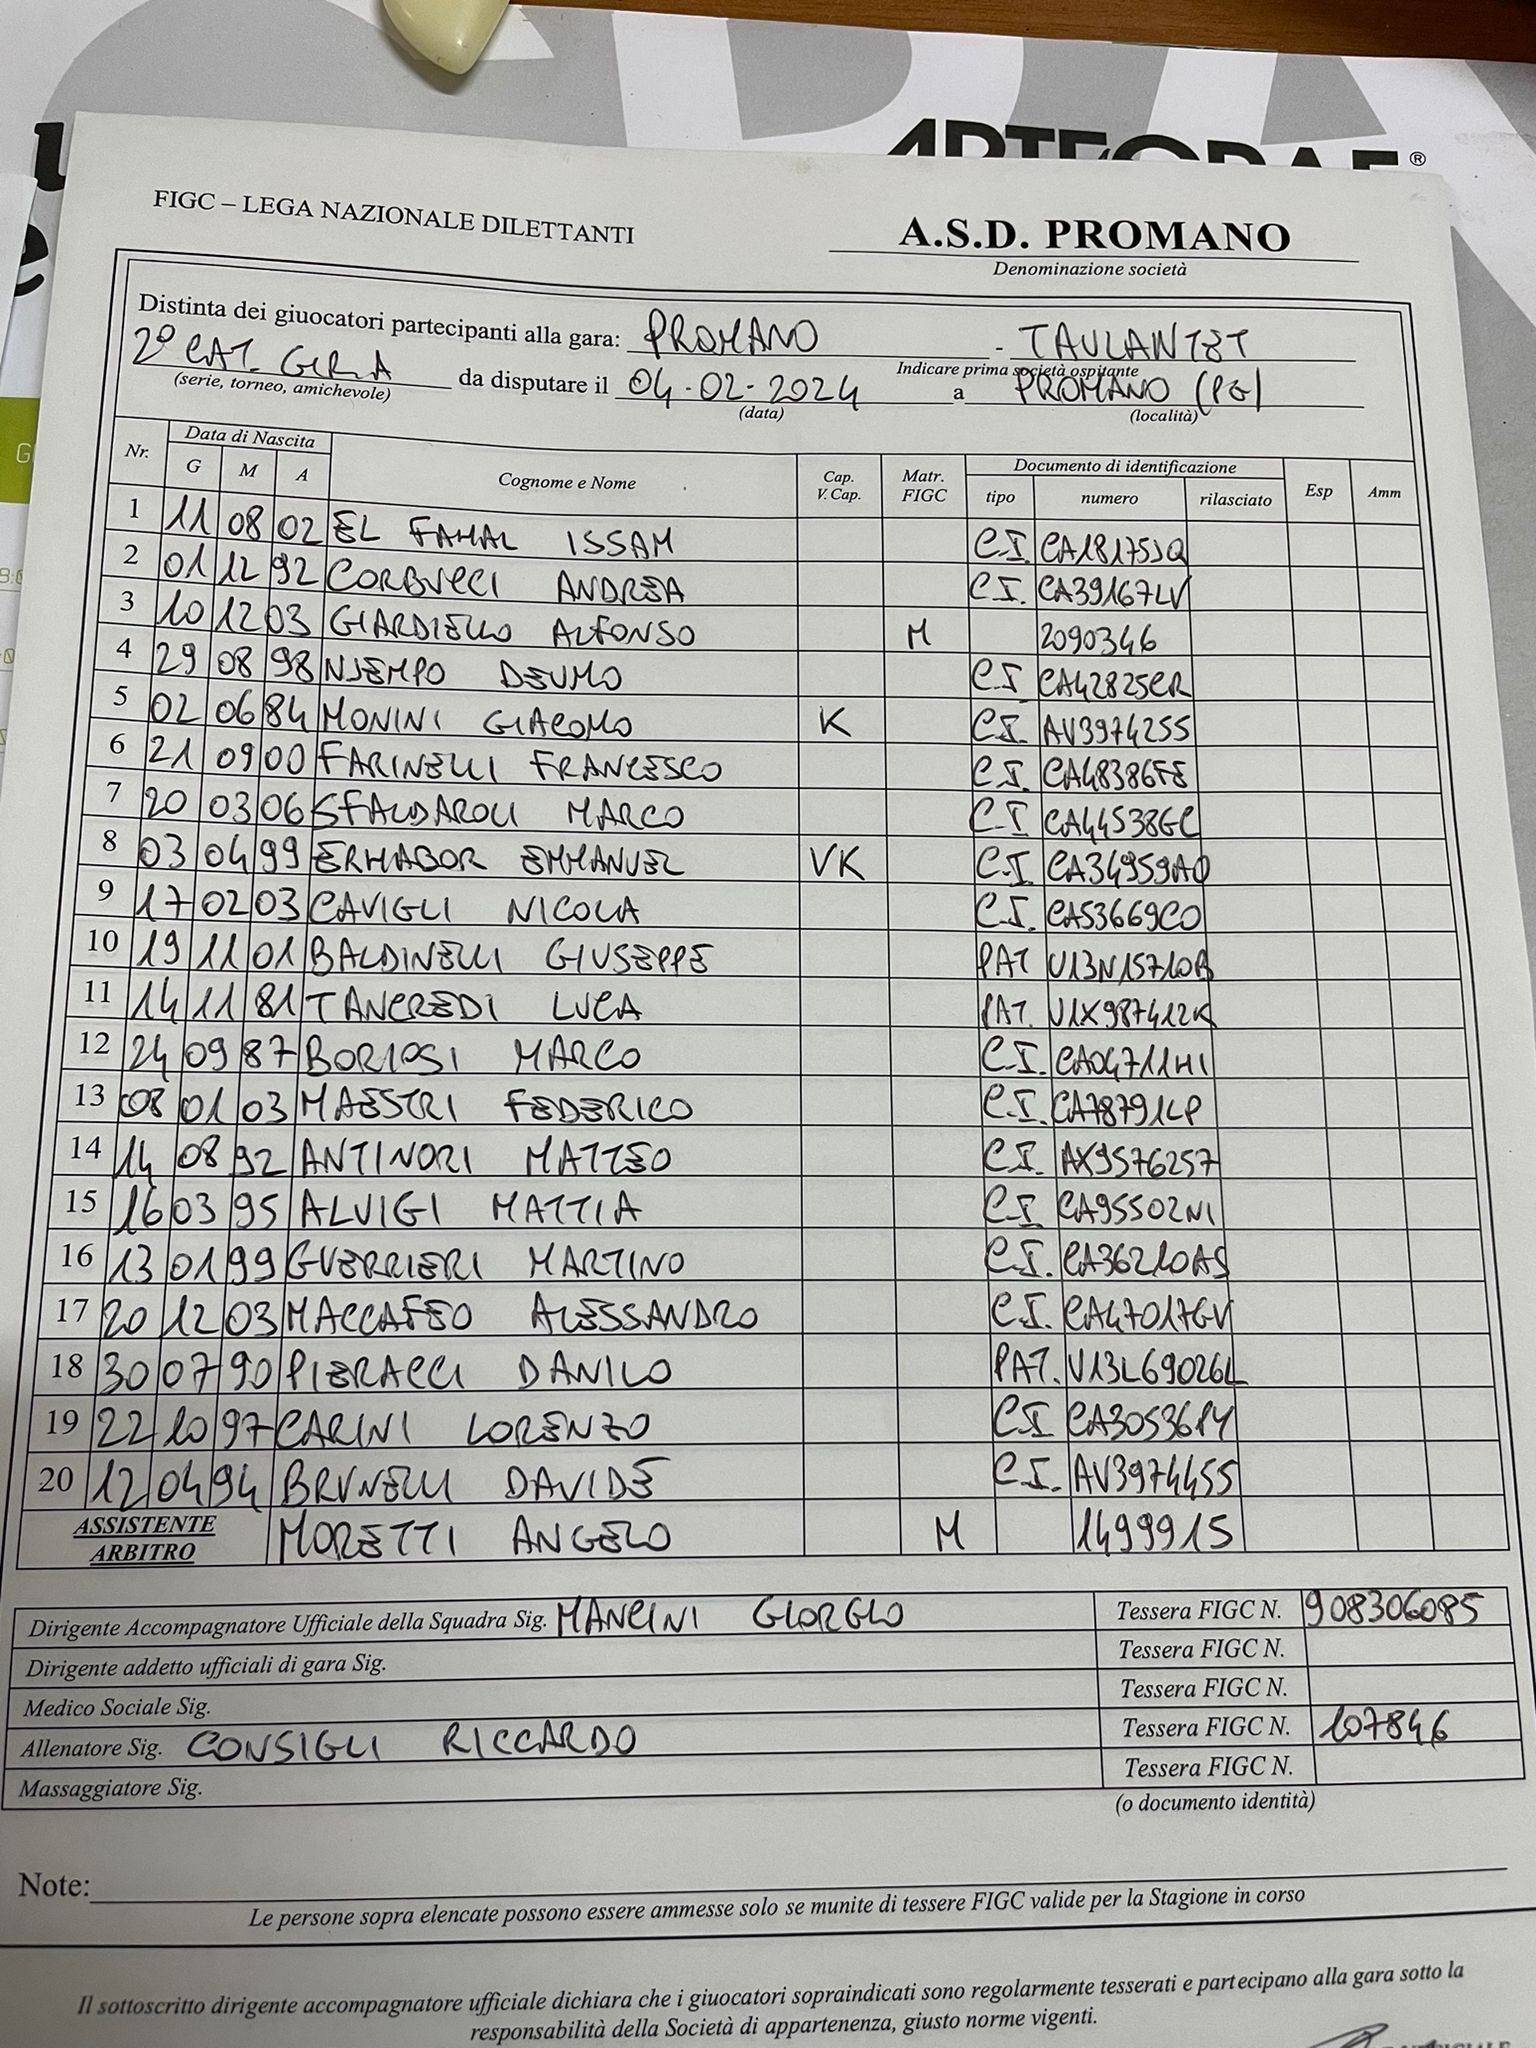 ARTEGRAF®
FIGC – LEGA NAZIONALE DILETTANTI
A.S.D. PROMANO
Denominazione società
Distinta dei giuocatori partecipanti alla gara: PROMANO - TAULANTET
Indicare prima società ospitante
2° CAT. GIR. A da disputare il 04-02-2024 a PROMANO (PG)
(serie, torneo, amichevole) (data) (località)
Nr. Data di Nascita Cognome e Nome Cap. V. Cap. Matr. FIGC Documento di identificazione Esp Amm
G M A tipo numero rilasciato
1 11 08 02 EL FAHAL ISSAM C.I. CA18175JQ
2 01 12 92 CORBUCCI ANDREA C.I. CA39167LV
3 10 12 03 GIARDIELLO ALFONSO M 2090346
4 29 08 98 NJEMPO DEUMO C.I. CA42825CR
5 02 06 84 MONINI GIACOMO K C.I. AV3974255
6 21 09 00 FARINELLI FRANCESCO C.I. CA48386FE
7 20 03 06 SFALDAROLI MARCO C.I. CA44538GC
8 03 04 99 ERHABOR EMMANUEL VK C.I. CA34959AO
9 17 02 03 CAVIGLI NICOLA C.I. CA53669CO
10 19 11 01 BALDINELLI GIUSEPPE PAT U13N15710B
11 14 11 81 TANCREDI LUCA PAT. U1X987412K
12 24 09 87 BORIOSI MARCO C.I. CA04711HI
13 08 01 03 MAESTRI FEDERICO C.I. CA78791LP
14 14 08 92 ANTINORI MATTEO C.I. AX9576257
15 16 03 95 ALVIGI MATTIA C.I. CA95502NI
16 13 01 99 GUERRIERI MARTINO C.I. CA36210AS
17 20 12 03 MACCAFEO ALESSANDRO C.I. CA47017GV
18 30 07 90 PIERACCI DANILO PAT. U13L69026L
19 22 10 97 CARINI LORENZO C.I. CA30536PY
20 12 04 94 BRUNELLI DAVIDE C.I. AV3974455
ASSISTENTE ARBITRO MORETTI ANGELO M 1499915
Dirigente Accompagnatore Ufficiale della Squadra Sig. MANCINI GIORGIO Tessera FIGC N. 908306085
Dirigente addetto ufficiali di gara Sig. Tessera FIGC N.
Medico Sociale Sig. Tessera FIGC N.
Allenatore Sig. CONSIGLI RICCARDO Tessera FIGC N. 107846
Massaggiatore Sig. Tessera FIGC N.
(o documento identità)
Note:
Le persone sopra elencate possono essere ammesse solo se munite di tessere FIGC valide per la Stagione in corso
Il sottoscritto dirigente accompagnatore ufficiale dichiara che i giuocatori sopraindicati sono regolarmente tesserati e partecipano alla gara sotto la
responsabilità della Società di appartenenza, giusto norme vigenti.